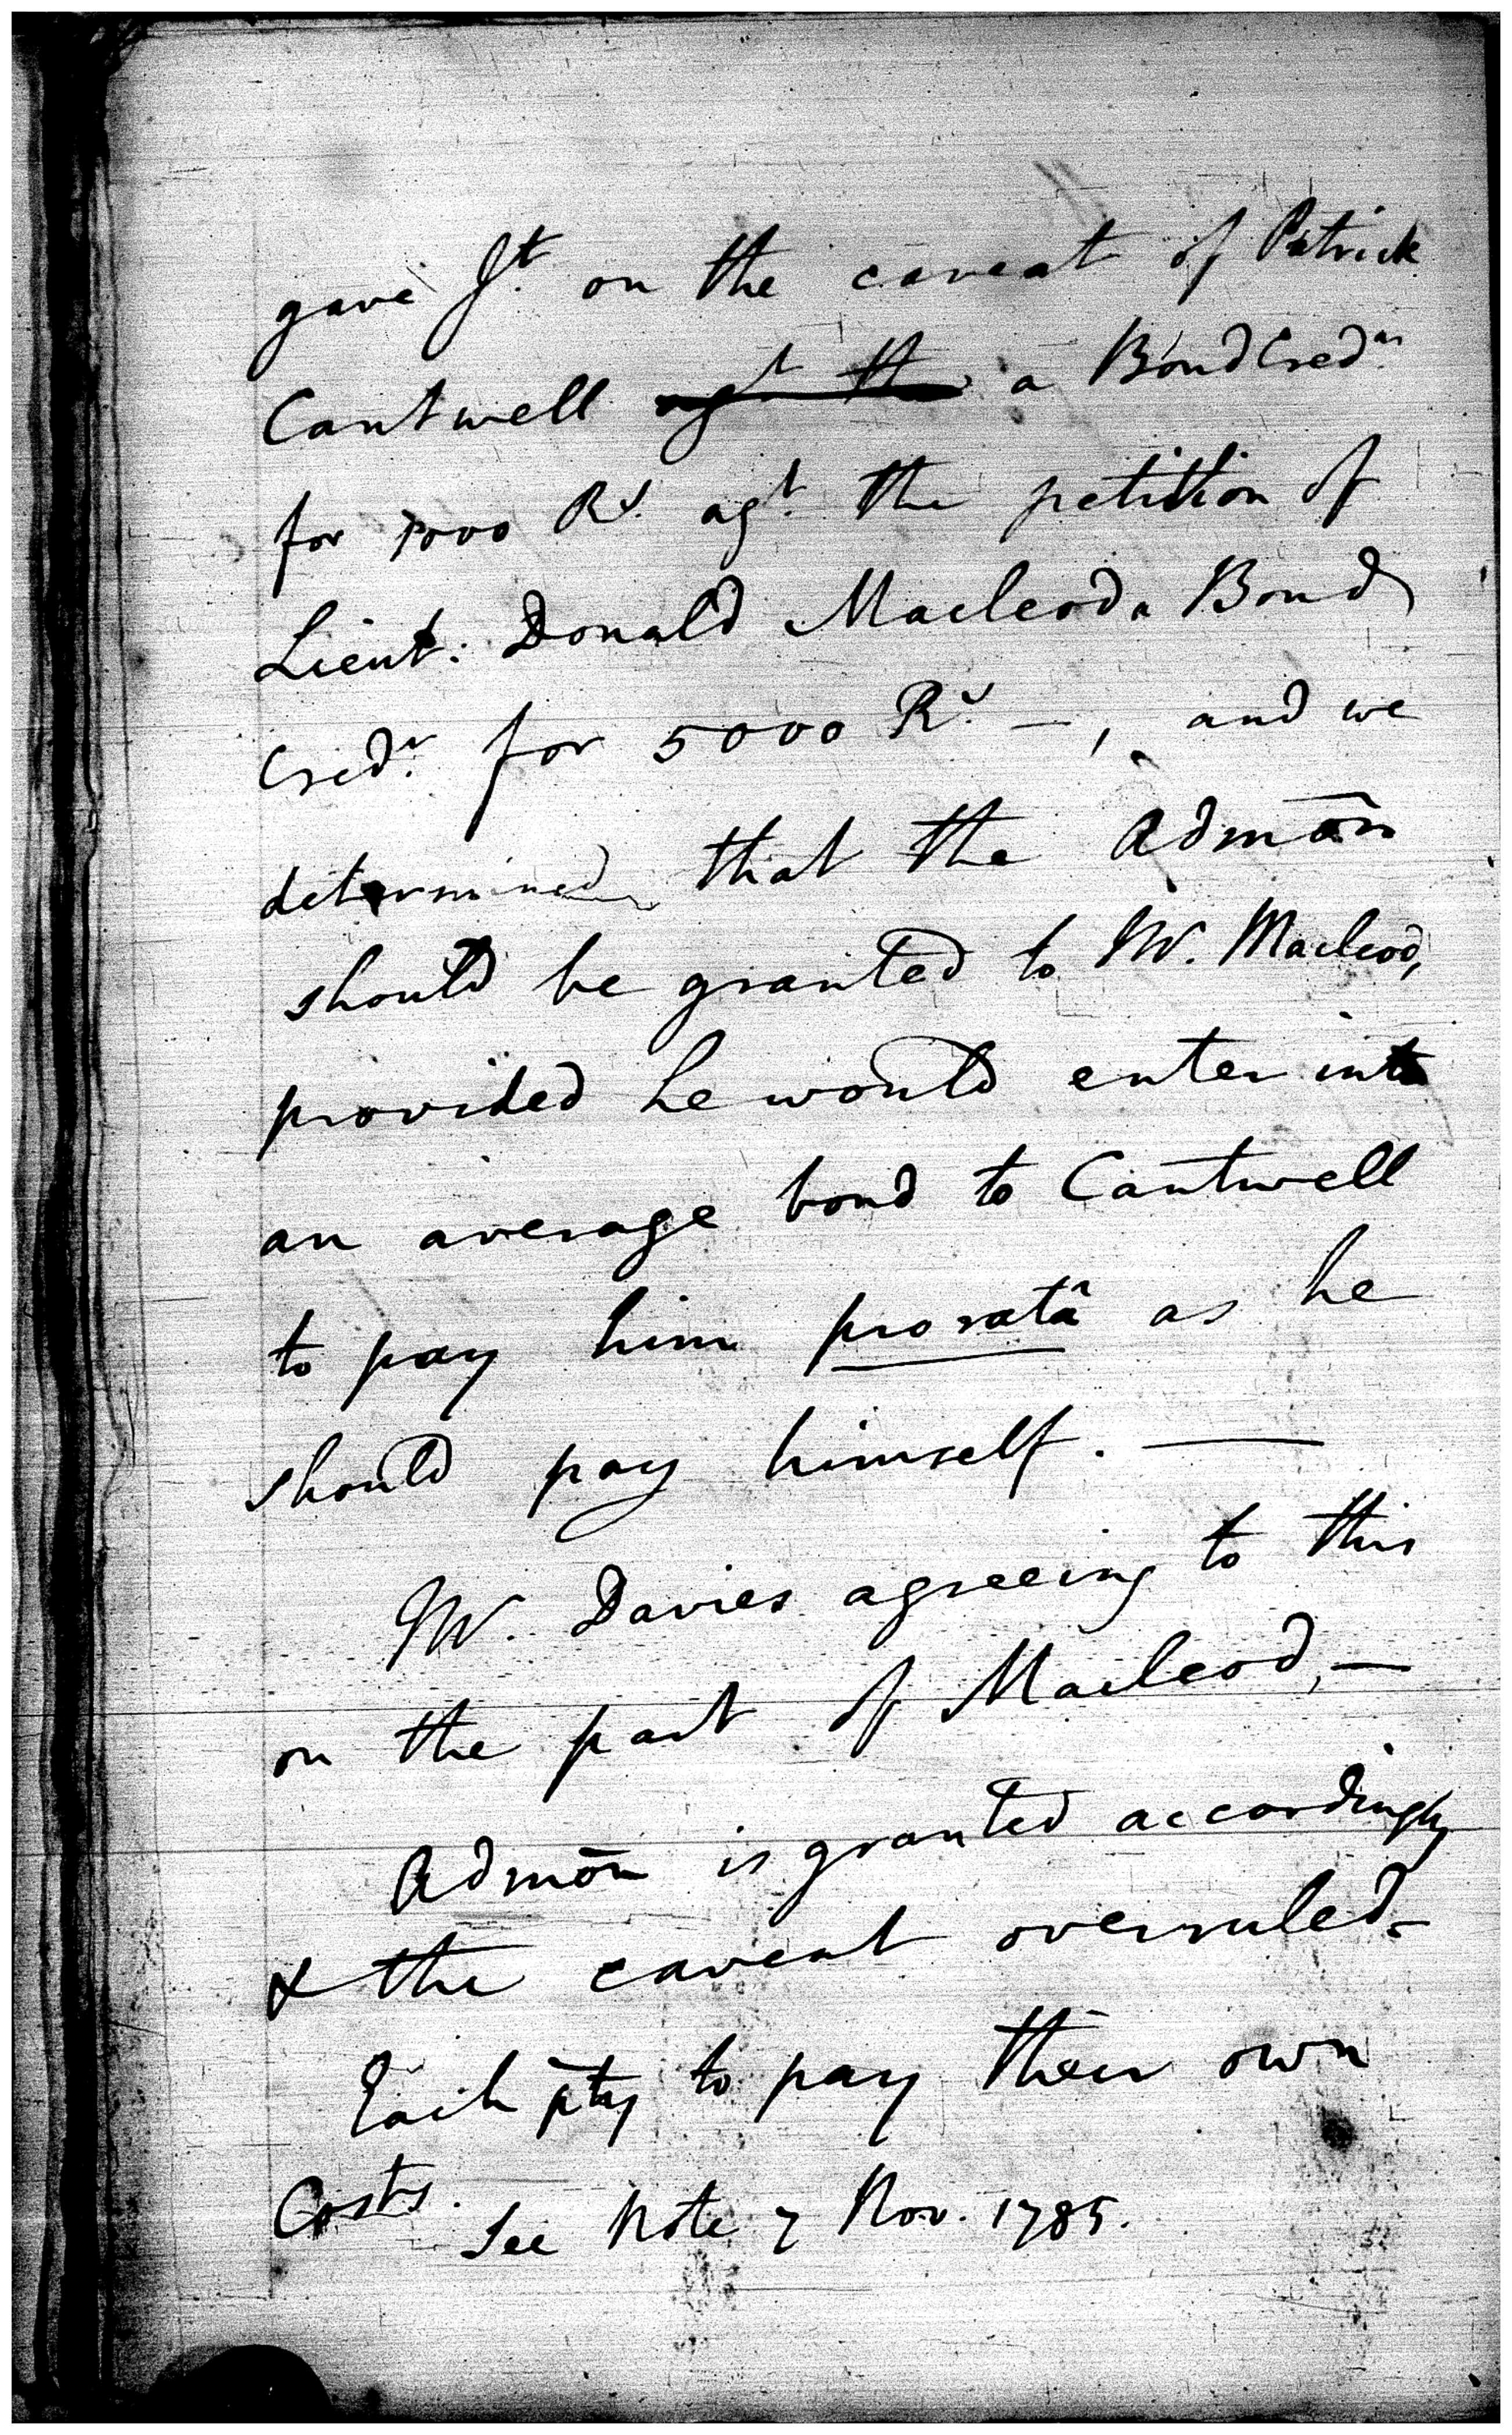 gave Jt. on the caveat of Patrick
Cantwell agt th a Bond Credr.
for 1000 Rs. agt. the petition of
Lieut. Donald Macleod a Bond
Credr. for 5000 Rs. —, and we
determined that the Admōn
should be granted to Mr. Macleod,
provided he would enter into
an average bond to Cantwell
to pay him pro ratâ as he
should pay himself. —
Mr. Davies agreeing to this
on the part of Macleod, —
Admōn is granted accordingly
& the caveat overruled.
Each pty to pay their own
Costs. See Note 7 Nov. 1785.